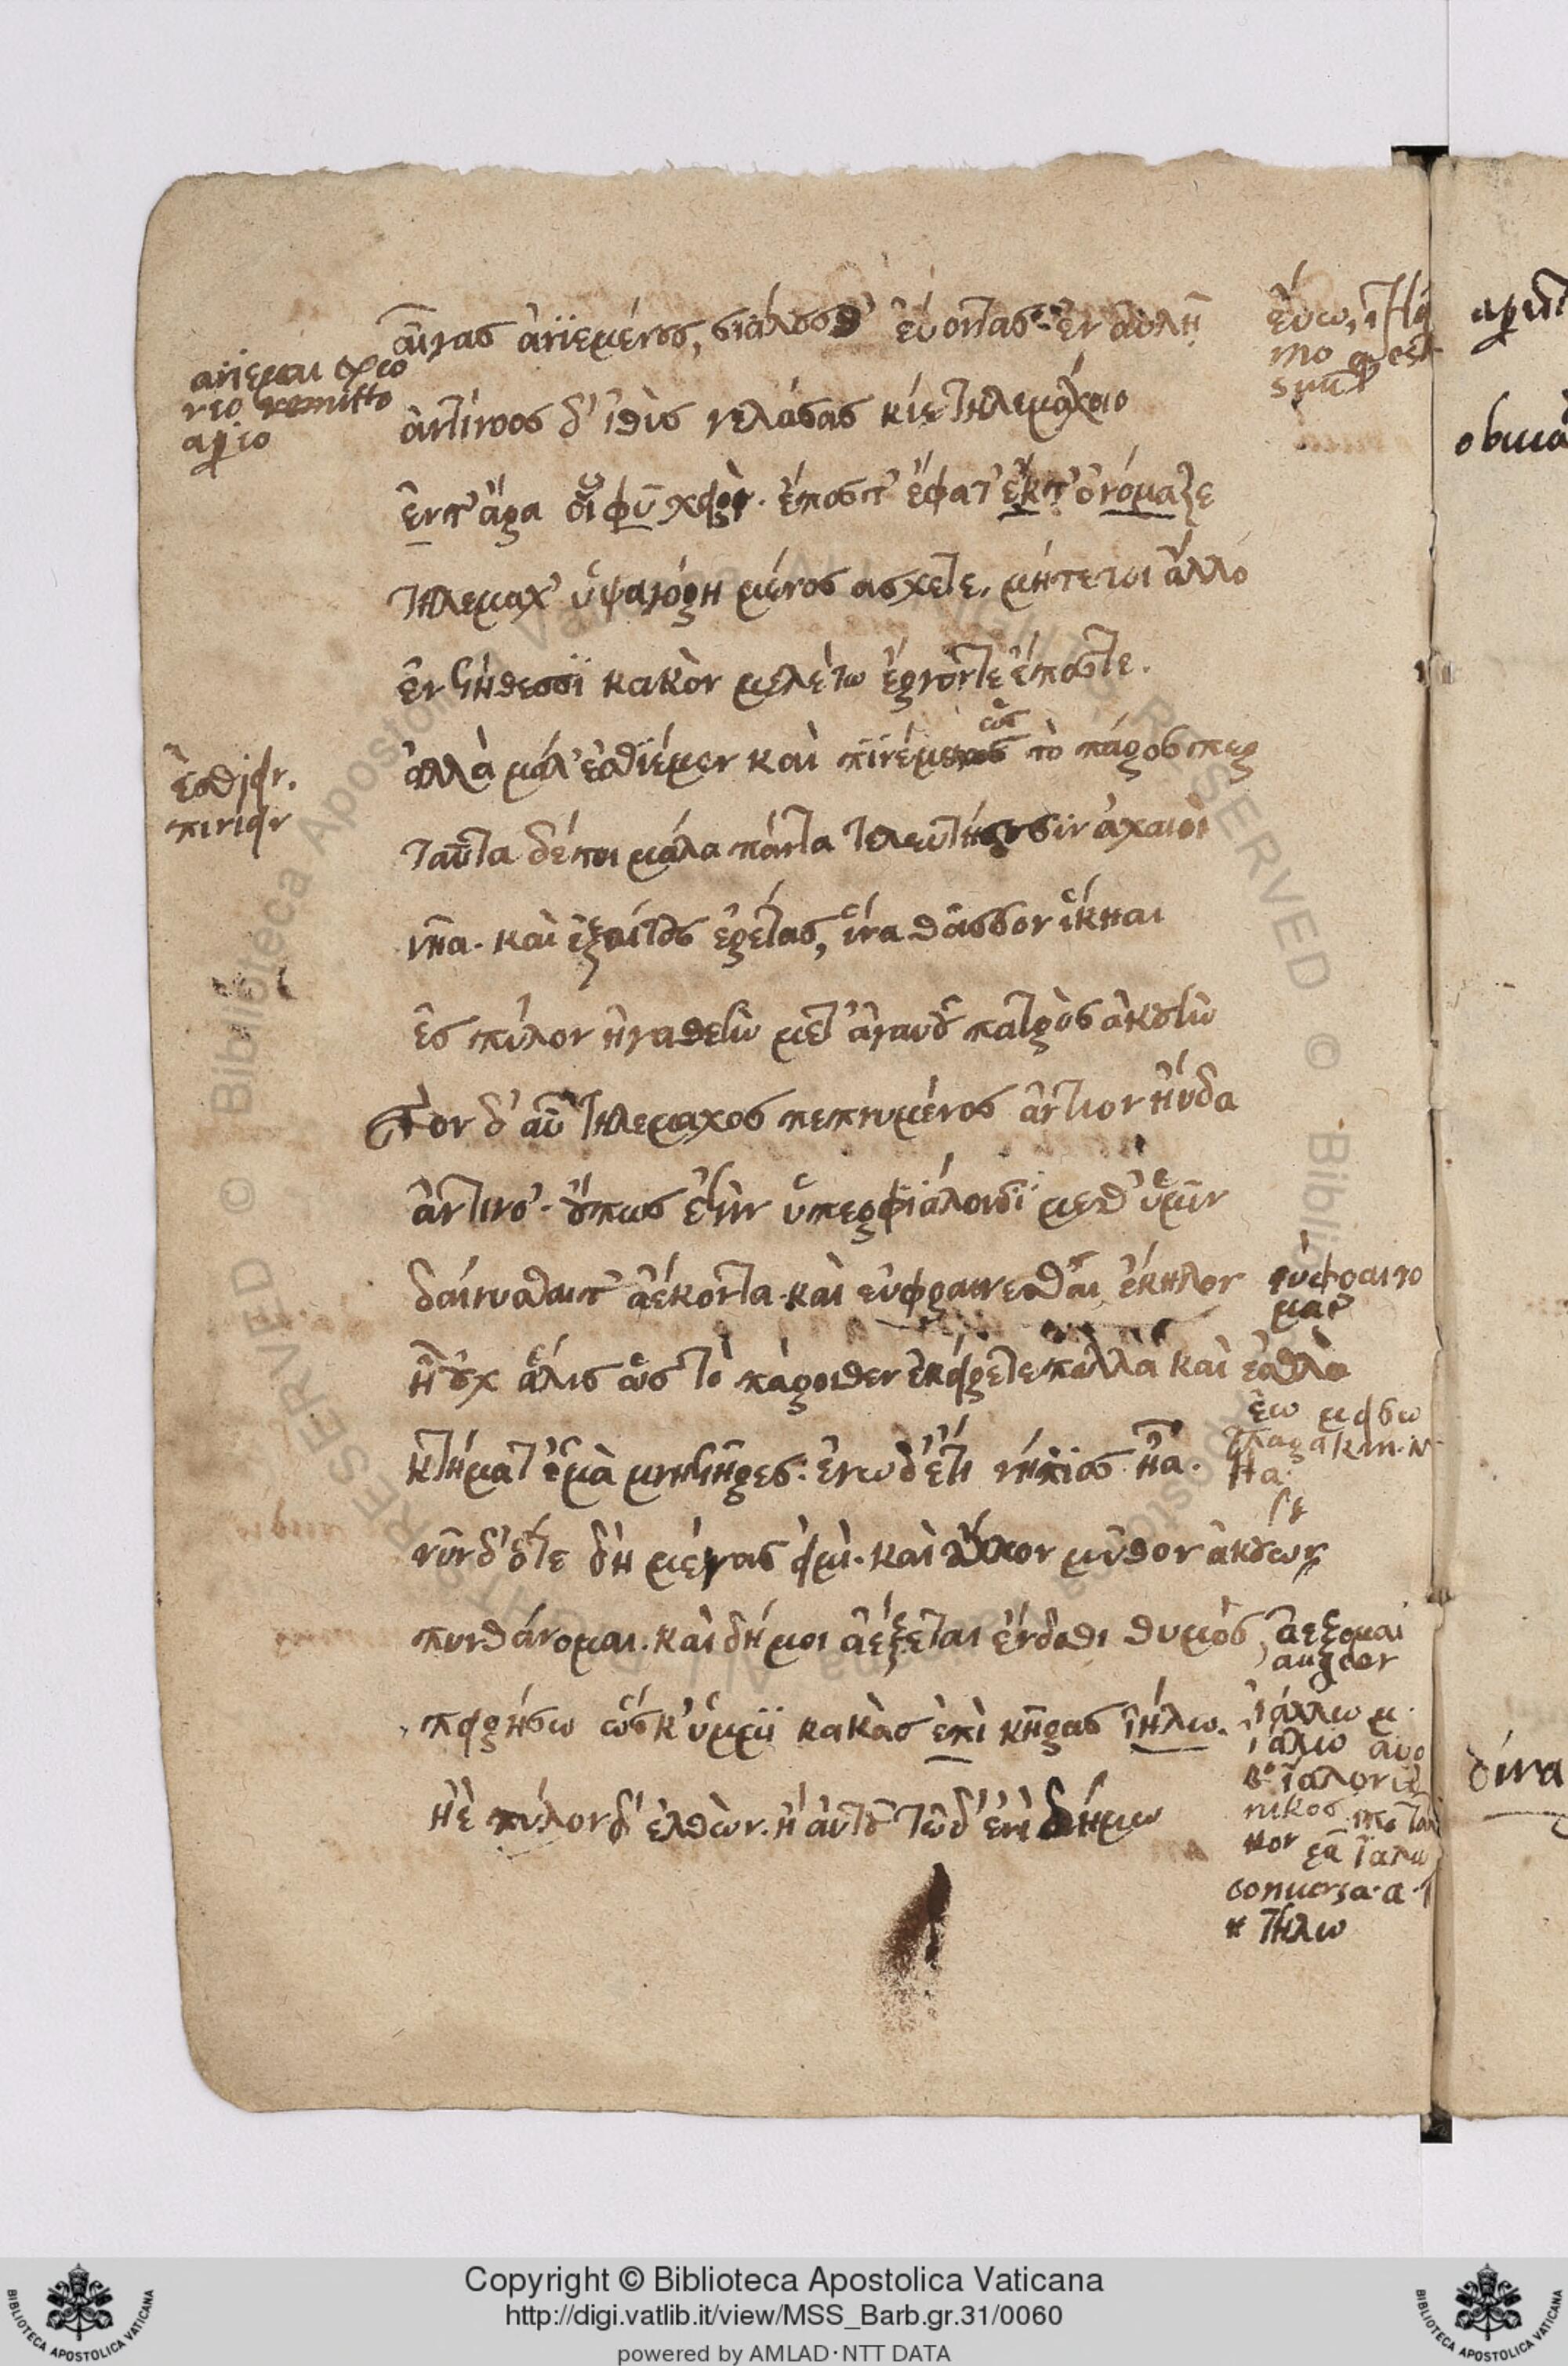 αἶγας ἀνϊεμένους, σιάλους θ' εὕοντας ἐν αὐλῆ
ἀντίνοος δ' ἰθὺς γελάσας κίε τηλεμάχοιο
ἔν τ' ἄρα οἷ φῦ χειρὶ. ἔπος τ' ἔφατ' ἔκ τ' ὀνόμαζε
τηλέμαχ' ὑψαγόρη μένος ασχετε. μήτε τοι ἄλλο
ἐν στήθεσσϊ κακὸν μελέτω ἔργόντε ἔποστε.
ἀλλὰ μάλ' ἐσθϊέμεν καὶ πϊνέμεν ὡς τὸ πάρος περ
ταῦτα δέ τοι μάλα πάντα τελευτήσουσιν ἀχαιοὶ
νῆα. καὶ ἐξαίτους ἐρέτας, ἵνα θᾶσσον ἵκηαι
ἐς πύλον ἠγαθεὴν μετ' ἀγαυοῦ πατρὸς ἀκουὴν
Τον δ' αὖ τηλεμαχος πεπνυμένος ἀντιον ηὔδα
ἀντινο'. οὔπως ἐστὶν ὑπερφϊάλοισϊ μεθ' ὑμῖν
δαίνυσθαι τ' ἀέκοντα. καὶ εὐφραινεσθαι ἕκηλον
ἦ οὐχ ἅλις ὡς τὸ πάροιθεν ἐκείρετε πολλὰ καὶ ἐσθλὰ
κτήματ' ἐμὰ μνηστῆρες. ἐγω δ' ἔτι νήπϊος ἦα.
νῦν δ' ὅτε δὴ μέγας εἰμὶ. καὶ ἄλλον μῦθον ἀκούων
πυνθάνομαι. καὶ δή μοι ἀέξεται ἔνδοθι θυμὸς
πειρήσω ὥς κ' ὔμμϊ κακὰς ἐπὶ κῆρας ἰήλω.
ἠὲ πύλον δ' ἐλθὼν. ἢ αὐτοῦ τῶδ' ἐνὶ δήμω
ἀνίεμαι
remitto
ἐσθίειν.
πινειν
εὕω,
ἀεξομαι
augeor
ἰάλλω μ.
Copyright © Biblioteca Apostolica Vaticana
http://digi.vatlib.it/view/MSS_Barb.gr.31/0060
powered by AMLAD·NTT DATA